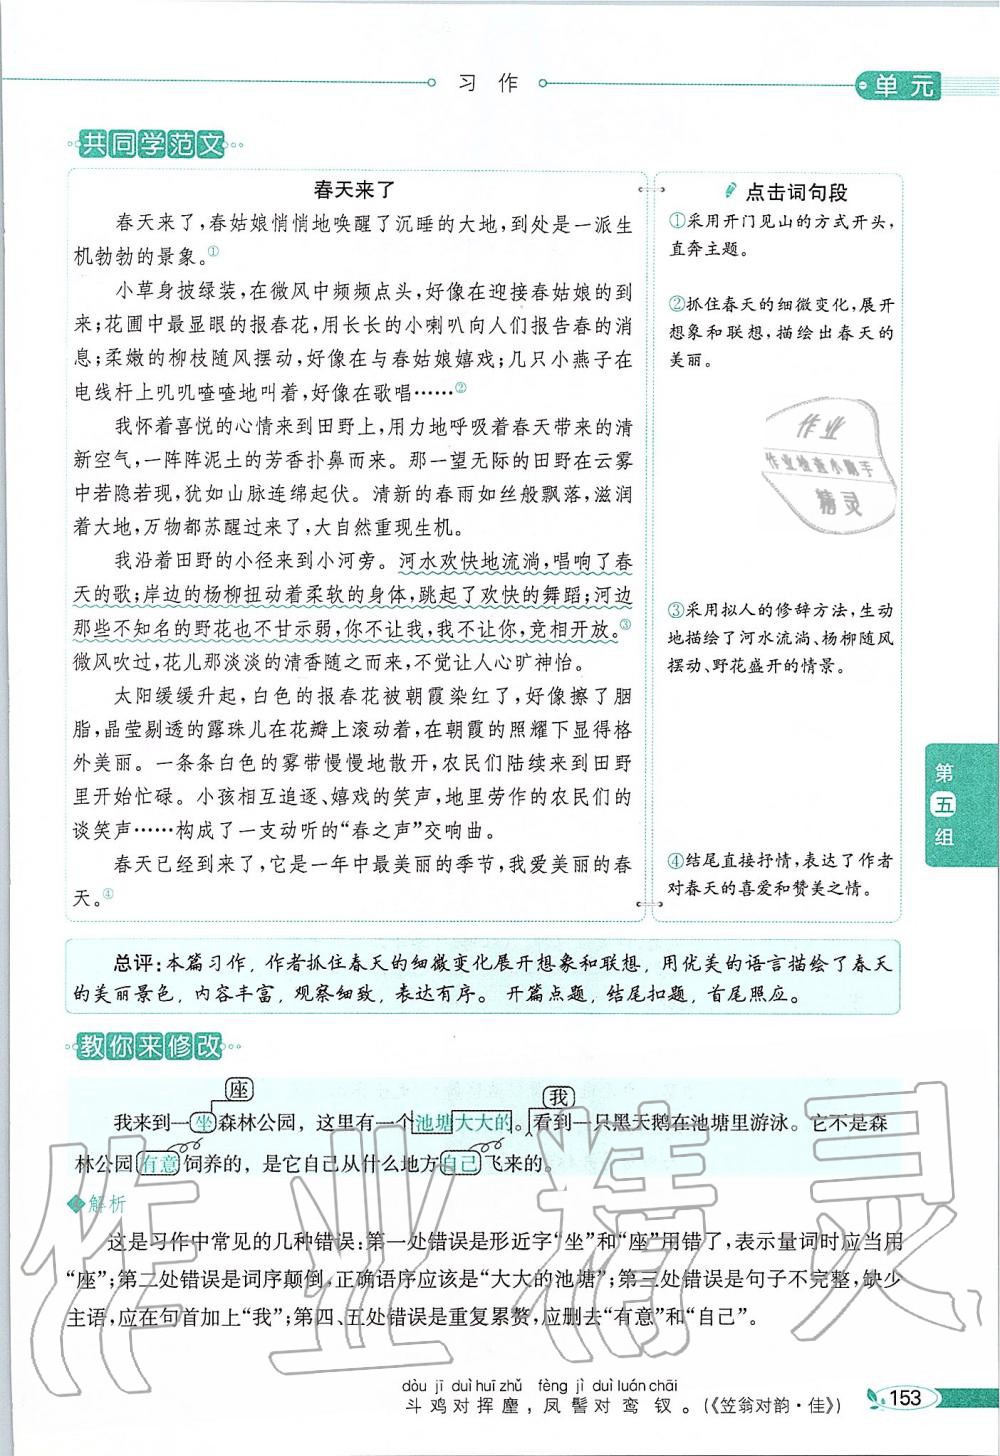 习作
单元
共同学范文
春天来了
春天来了，春姑娘悄悄地唤醒了沉睡的大地，到处是一派生
机勃勃的景象。①
小草身披绿装，在微风中频频点头，好像在迎接春姑娘的到
来；花圃中最显眼的报春花，用长长的小喇叭向人们报告春的消
息；柔嫩的柳枝随风摆动，好像在与春姑娘嬉戏；几只小燕子在
电线杆上叽叽喳喳地叫着，好像在歌唱……②
我怀着喜悦的心情来到田野上，用力地呼吸着春天带来的清
新空气，一阵阵泥土的芳香扑鼻而来。那一望无际的田野在云雾
中若隐若现，犹如山脉连绵起伏。清新的春雨如丝般飘落，滋润
着大地，万物都苏醒过来了，大自然重现生机。
我沿着田野的小径来到小河旁。河水欢快地流淌，唱响了春
天的歌；岸边的杨柳扭动着柔软的身体，跳起了欢快的舞蹈；河边
那些不知名的野花也不甘示弱，你不让我，我不让你，竞相开放。③
微风吹过，花儿那淡淡的清香随之而来，不觉让人心旷神怡。
太阳缓缓升起，白色的报春花被朝霞染红了，好像擦了胭
脂，晶莹剔透的露珠儿在花瓣上滚动着，在朝霞的照耀下显得格
外美丽。一条条白色的雾带慢慢地散开，农民们陆续来到田野
里开始忙碌。小孩相互追逐、嬉戏的笑声，地里劳作的农民们的
谈笑声……构成了一支动听的“春之声”交响曲。
春天已经来到了，它是一年中最美丽的季节，我爱美丽的春
天。④
点击词句段
①采用开门见山的方式开头，
直奔主题。
②抓住春天的细微变化，展开
想象和联想，描绘出春天的
美丽。
作业
作业检查小助手
精灵
③采用拟人的修辞方法，生动
地描绘了河水流淌、杨柳随风
摆动、野花盛开的情景。
④结尾直接抒情，表达了作者
对春天的喜爱和赞美之情。
第
五
组
总评：本篇习作，作者抓住春天的细微变化展开想象和联想，用优美的语言描绘了春天
的美丽景色，内容丰富，观察细致，表达有序。开篇点题，结尾扣题，首尾照应。
教你来修改
座
我
我来到一坐森林公园，这里有一个池塘大大的。看到一只黑天鹅在池塘里游泳。它不是森
林公园有意饲养的，是它自己从什么地方自己飞来的。
解析
这是习作中常见的几种错误：第一处错误是形近字“坐”和“座”用错了，表示量词时应当用
“座”；第二处错误是词序颠倒，正确语序应该是“大大的池塘”；第三处错误是句子不完整，缺少
主语，应在句首加上“我”；第四、五处错误是重复累赘，应删去“有意”和“自己”。
作业精灵
dòu jī duì huī zhǔ fèng jì duì luán chāi
斗鸡对挥麈，凤髻对鸾钗。（《笠翁对韵·佳》）
153